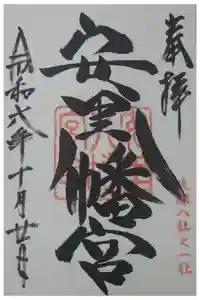 奉拝
安里八幡宮
令和六年十月廿日
琉球八社之一社